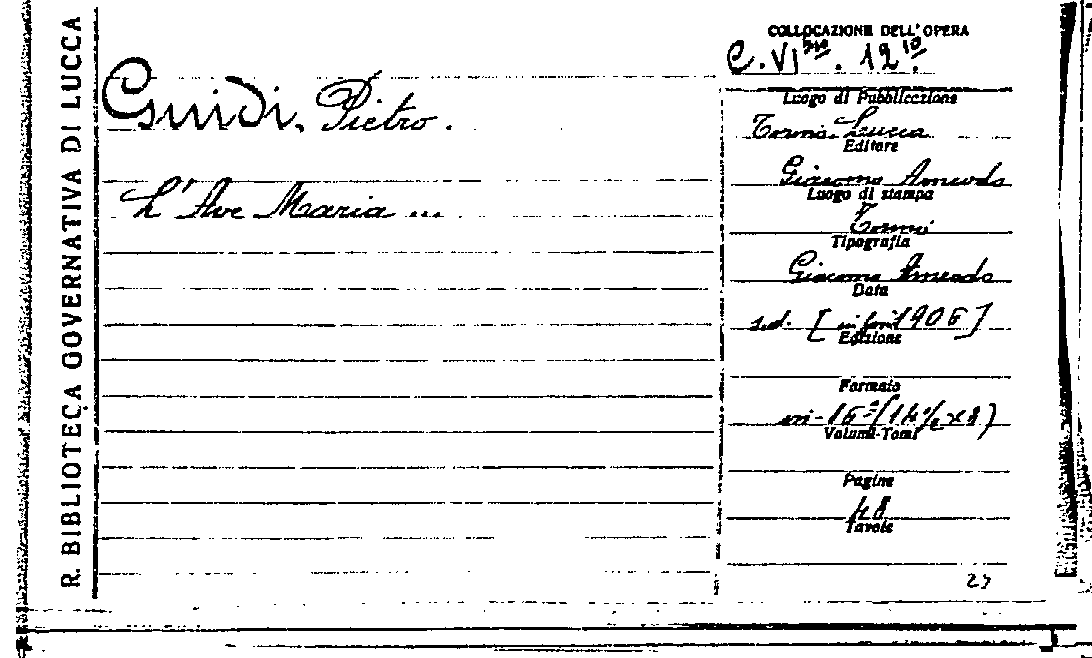 R. BIBLIOTECA GOVERNATIVA DI LUCCA
Guidi, Pietro.
L'Ave Maria ...
COLLOCAZIONE DELL'OPERA
C. VI. 12
Luogo di Pubblicazione
Lucca
Editore
Giacomo Arneodo
Luogo di stampa
Torino
Tipografia
Giacomo Arneodo
Data
s.d. [in fine 1906]
Edizione
Formato
in-16°
Volumi-Tomi
Pagine
48
Tavole
27